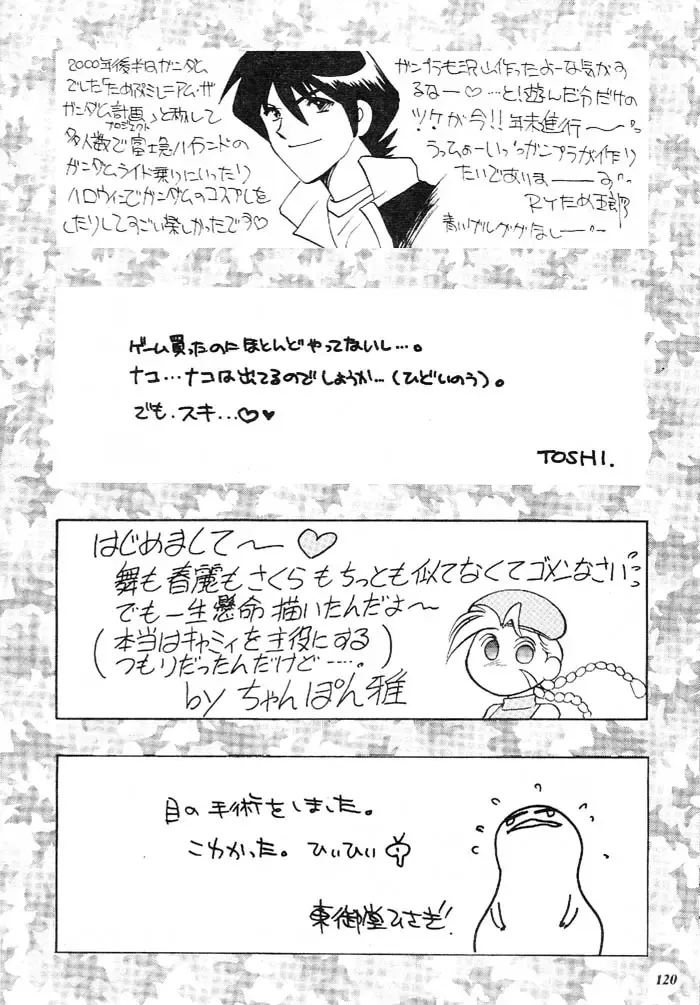 2000年後半はガンダム
でした「ためつぶミレニアム・ザ
ガンダム計画」と称して
プロジェクト
多人数で富士急ハイランドの
ガンダムライド乗りにいったり
ハロウィンでガンダムのコスプレを
したりしてすごい楽しかったです♡
ガンプラも沢山作ったよーな気がす
るなー♡…とり遊んだ分だけの
ツケが今!!年末進行〜〜
ガンプラが作り
たいであります
青いゲルググ
ゲーム買ったのにほとんどやってないし…。
ナコ…ナコは出てるのでしょうか…(ひどいのう)。
でも、スキ…♡♥
TOSHI.
はじめまして〜〜♡
舞も春麗もさくらもちっとも似てなくてゴメンなさい
でも一生懸命描いたんだよ〜
(本当はキャミィを主役にする
つもりだったんだけど……。)
by ちゃんぽん雅
目の手術をしました。
こわかった。ひぃひぃ
東御堂ひさぎ!
120